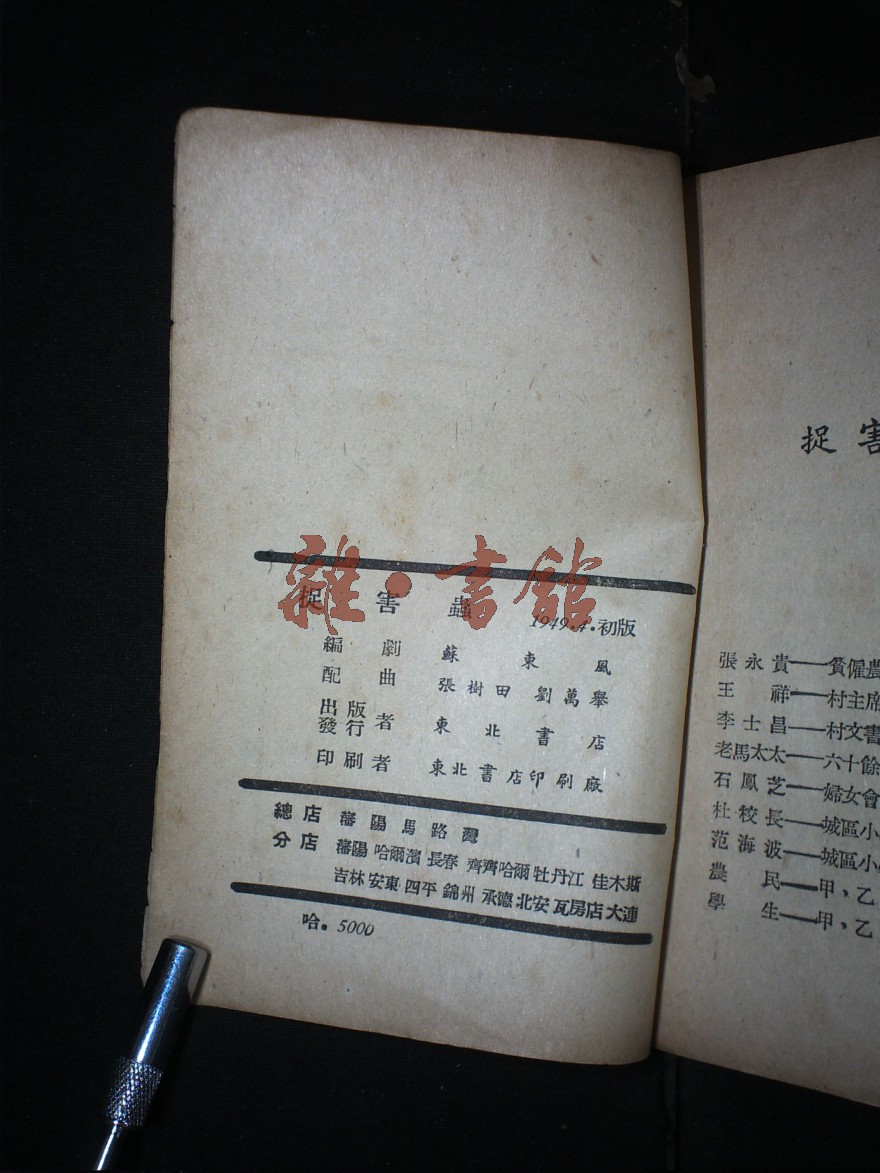 雜·書館
捉害蟲
1949.4.初版
編劇 蘇東風
配曲 張樹田 劉萬舉
出版
發行者 東北書店
印刷者 東北書店印刷廠
總店 藩陽馬路灣
分店 藩陽 哈爾濱 長春 齊齊哈爾 牡丹江 佳木斯
吉林 安東 四平 錦州 承德 北安 瓦房店 大連
哈.5000
捉害
張永貴——貧僱農
王祥——村主席
李士昌——村文書
老馬太太——六十餘
石鳳芝——婦女會
杜校長——城區小
范海波——城區小
農民——甲、乙
學生——甲、乙